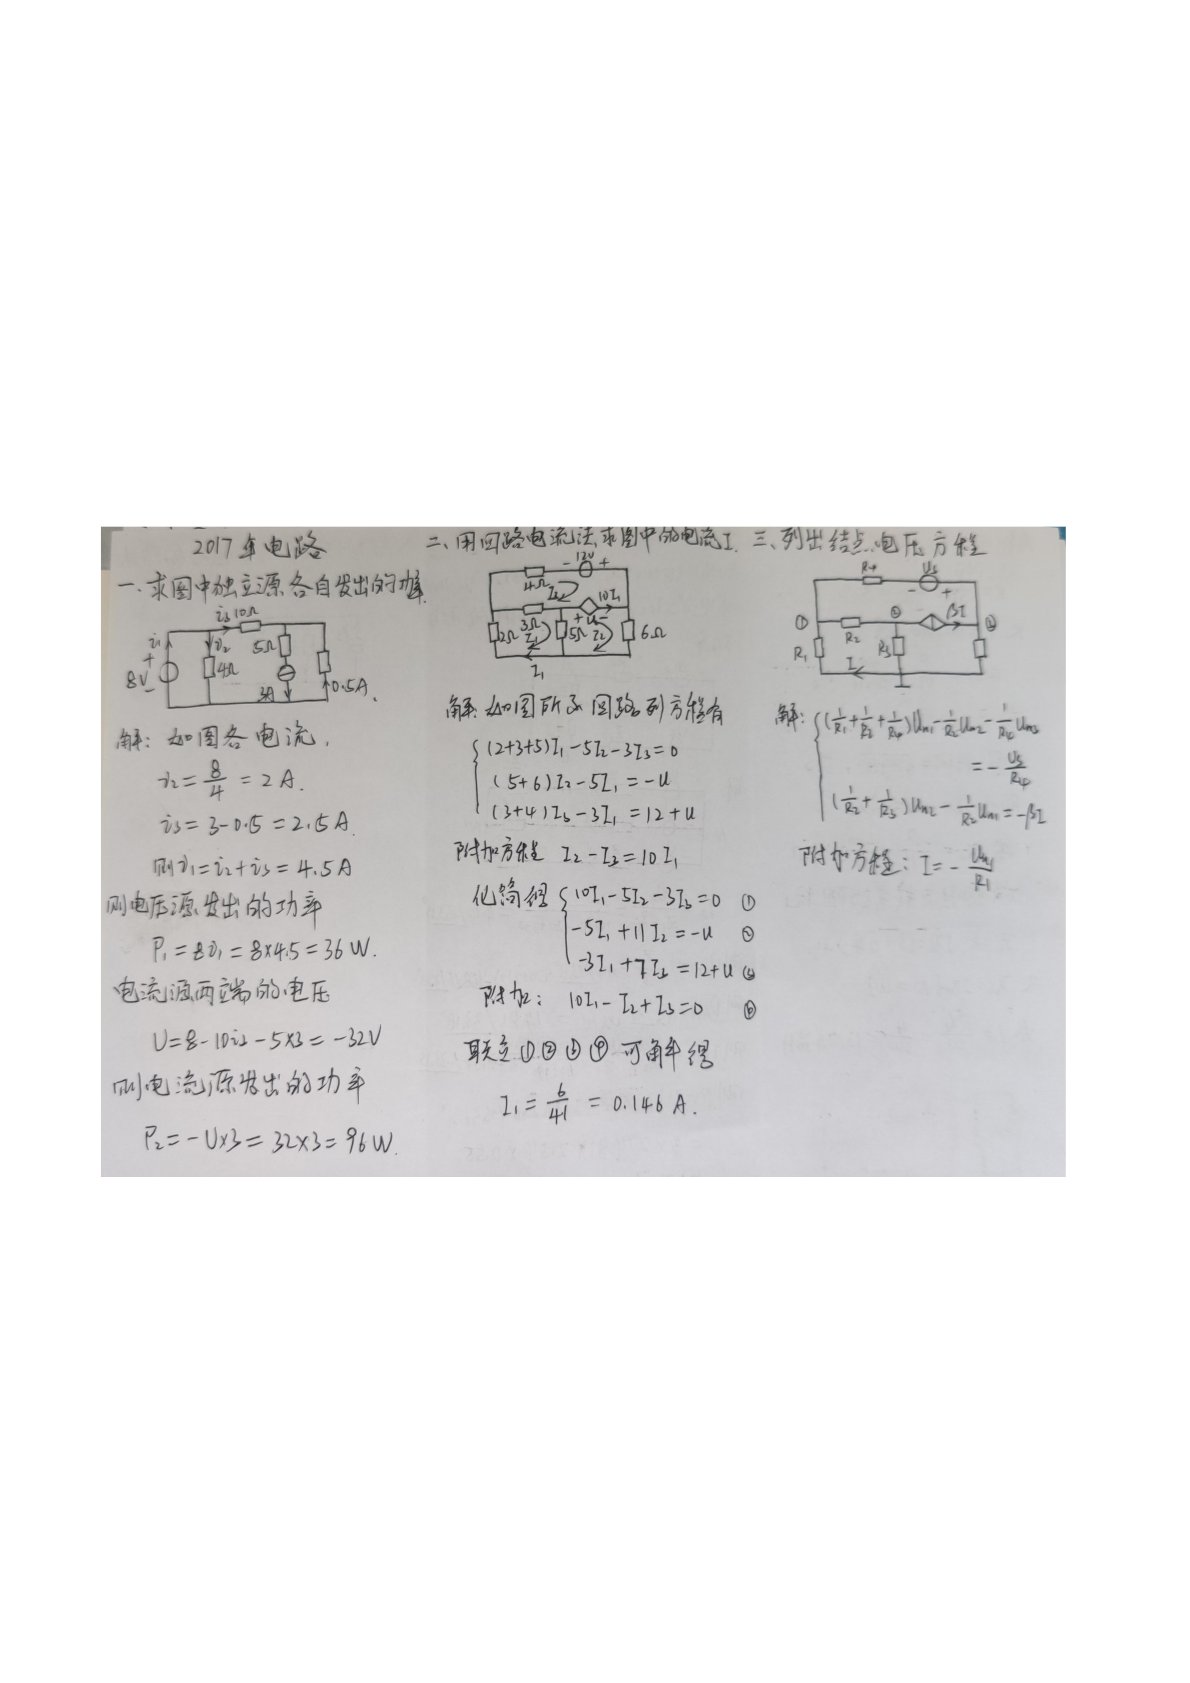 2017年电路
一、求图中独立源各自发出的功率.
i₁
i₂
i₃ 10Ω
5Ω
4Ω
+
8V
-
3A
0.5A
解: 如图各电流,
i₂ = 8/4 = 2A.
i₃ = 3-0.5 = 2.5A.
则i₁=i₂+i₃ = 4.5A
则电压源发出的功率
P₁ = 8i₁ = 8×4.5 = 36W.
电流源两端的电压
U=8-10i₃-5×3 = -32V
则电流源发出的功率
P₂ = -U×3 = 32×3 = 96W.
二、用回路电流法求图中的电流I.
- 12V +
4Ω
I₃
10I₁
3Ω
+ u -
2Ω
I₁
5Ω
I₂
6Ω
I₁
解: 如图所示回路列方程有
(2+3+5)I₁-5I₂-3I₃=0
(5+6)I₂-5I₁=-u
(3+4)I₃-3I₁=12+u
附加方程 I₂-I₃=10I₁
化简得 10I₁-5I₂-3I₃=0 ①
-5I₁+11I₂=-u ②
-3I₁+7I₃=12+u
附加: 10I₁-I₂+I₃=0
联立①②③④可解得
I₁ = 6/41 = 0.146A.
三、列出结点电压方程
R₄
Us
- +
①
②
βI
③
R₂
R₁
R₃
I
解: (1/R₁+1/R₂+1/R₄)Un₁-1/R₂Un₂-1/R₄Un₃
= -Us/R₄
(1/R₂+1/R₃)Un₂-1/R₂Un₁=-βI
附加方程: I=-Un₁/R₁